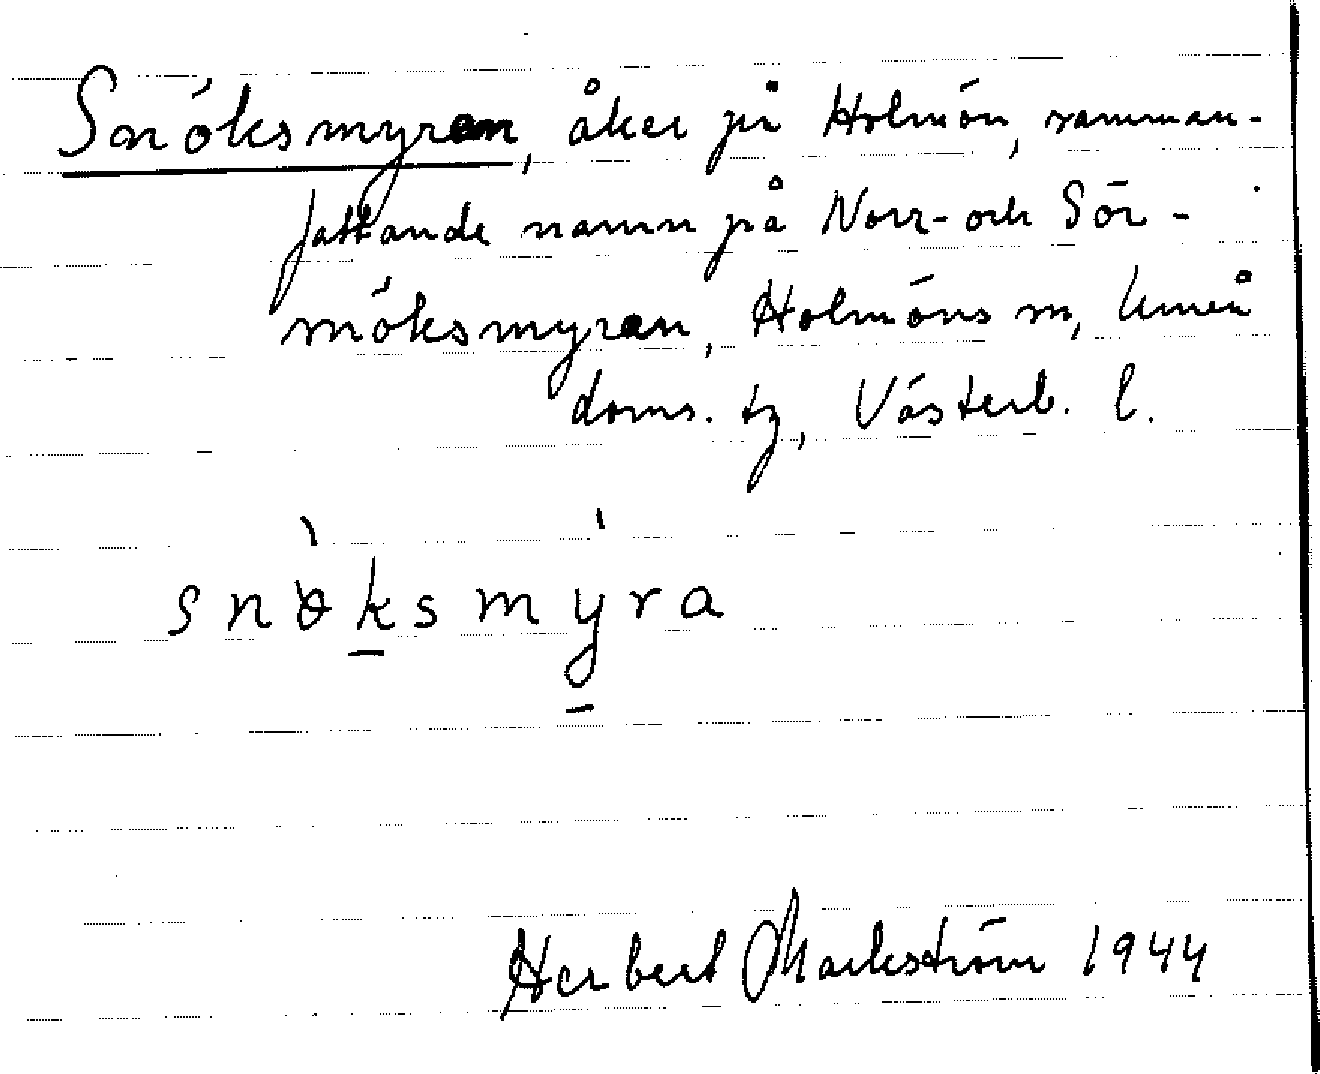 Snöksmyran, åker på Holmön, samman-
fattande namn på Norr- och Sör-
snöksmyran, Holmöns sn, Umeå
doms. tg, Västerb. l.
snöksmyra
Herbert Markström 1944